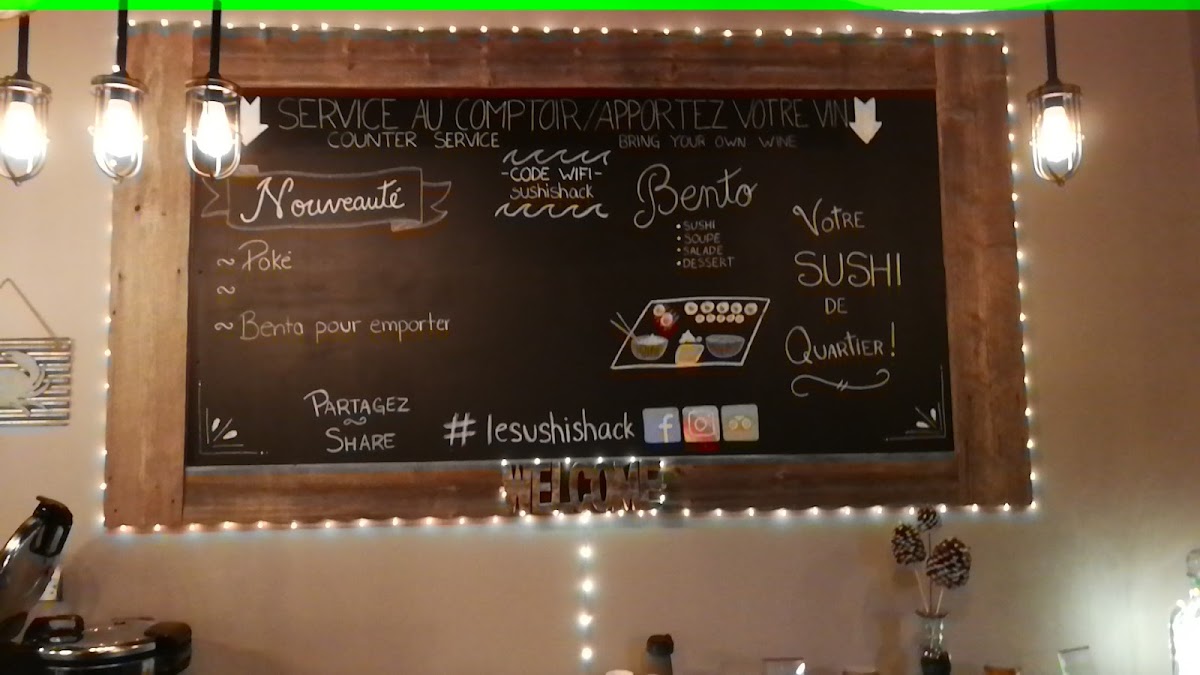 SERVICE AU COMPTOIR/APPORTEZ VOTRE VIN
COUNTER SERVICE
BRING YOUR OWN WINE
Nouveauté
~ Poké
~
~ Bento pour emporter
-CODE WIFI-
sushishack
Bento
• SUSHI
• SOUPE
• SALADE
• DESSERT
VOTRE
SUSHI
DE
QUARTIER!
PARTAGEZ
~
SHARE
# lesushishack
WELCOME